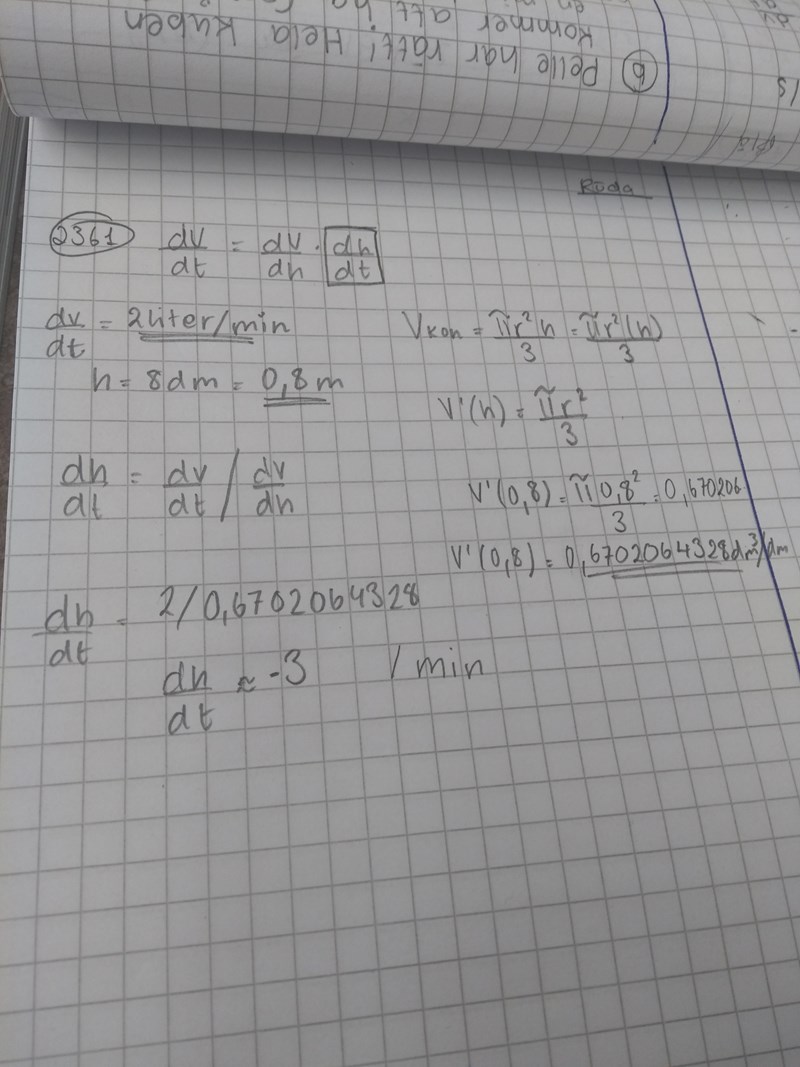 ⑥ Pelle har rätt! Hela kuben
kommer att
Röda
2361 dv/dt = dv/dh · dh/dt
dv/dt = 2 liter/min
Vkon = πr²h/3 = πr²(h)/3
h = 8dm = 0,8m
V'(h) = πr²/3
dh/dt = dv/dt / dv/dh
V'(0,8) = π0,8²/3 = 0,670206
V'(0,8) = 0,6702064328dm³/dm
dh/dt = 2/0,6702064328
dh/dt ≈ -3 /min